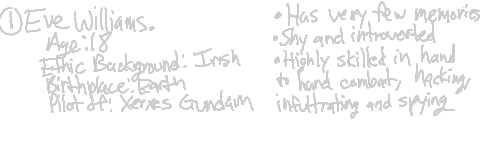 ① Eve Williams.
Age: 18
Ethic Background: Irish
Birthplace: Earth
Pilot of: Xerxes Gundam
• Has very few memories
• Shy and introverted
• Highly skilled in hand
to hand combat, hacking,
infultrating and spying